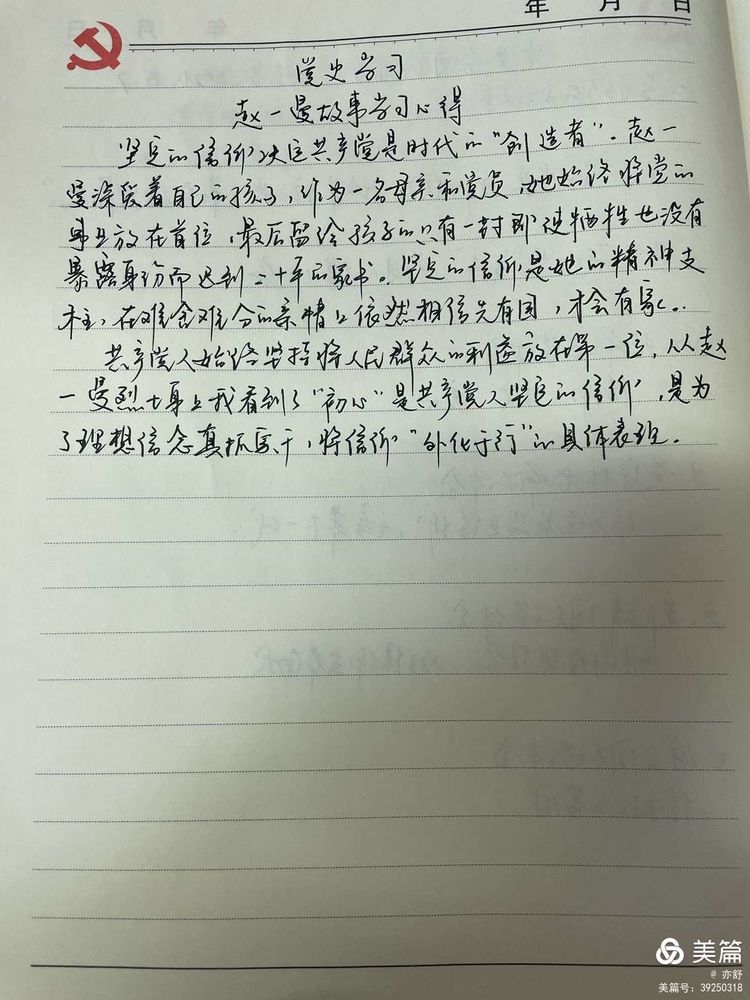 年 月 日
党史学习
赵一曼故事学习心得
坚定的信仰决定共产党是时代的“创造者”。赵一
曼深爱着自己的孩子，作为一名母亲和党员，她始终将党的
事业放在首位，最后留给孩子的只有一封即使牺牲也没有
暴露身份而迟到二十年的家书。坚定的信仰是她的精神支
柱，在难舍难分的亲情上依然相信先有国，才会有家。
共产党人始终坚持将人民群众的利益放在第一位，从赵
一曼烈士身上我看到了“初心”是共产党人坚定的信仰，是为
了理想信念真抓实干，将信仰“外化于行”的具体表现。
美篇
@ 亦舒
美篇号：39250318